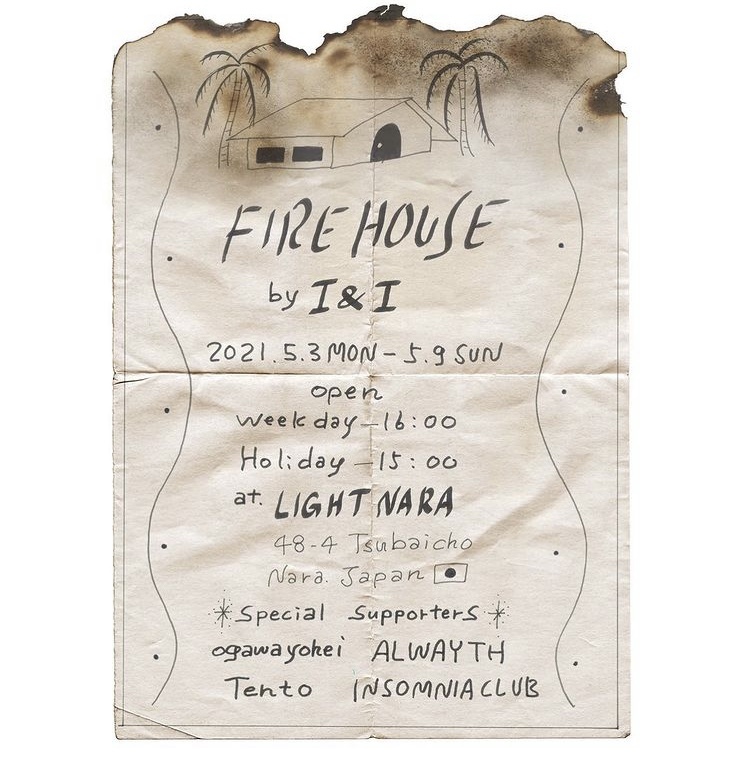 FIRE HOUSE
by I & I
2021.5.3 MON - 5.9 SUN
open
weekday - 16:00
Holiday - 15:00
at. LIGHT NARA
48-4 Tsubaicho
Nara. Japan
Special Supporters
ogawayohei ALWAYTH
Tento INSOMNIA CLUB